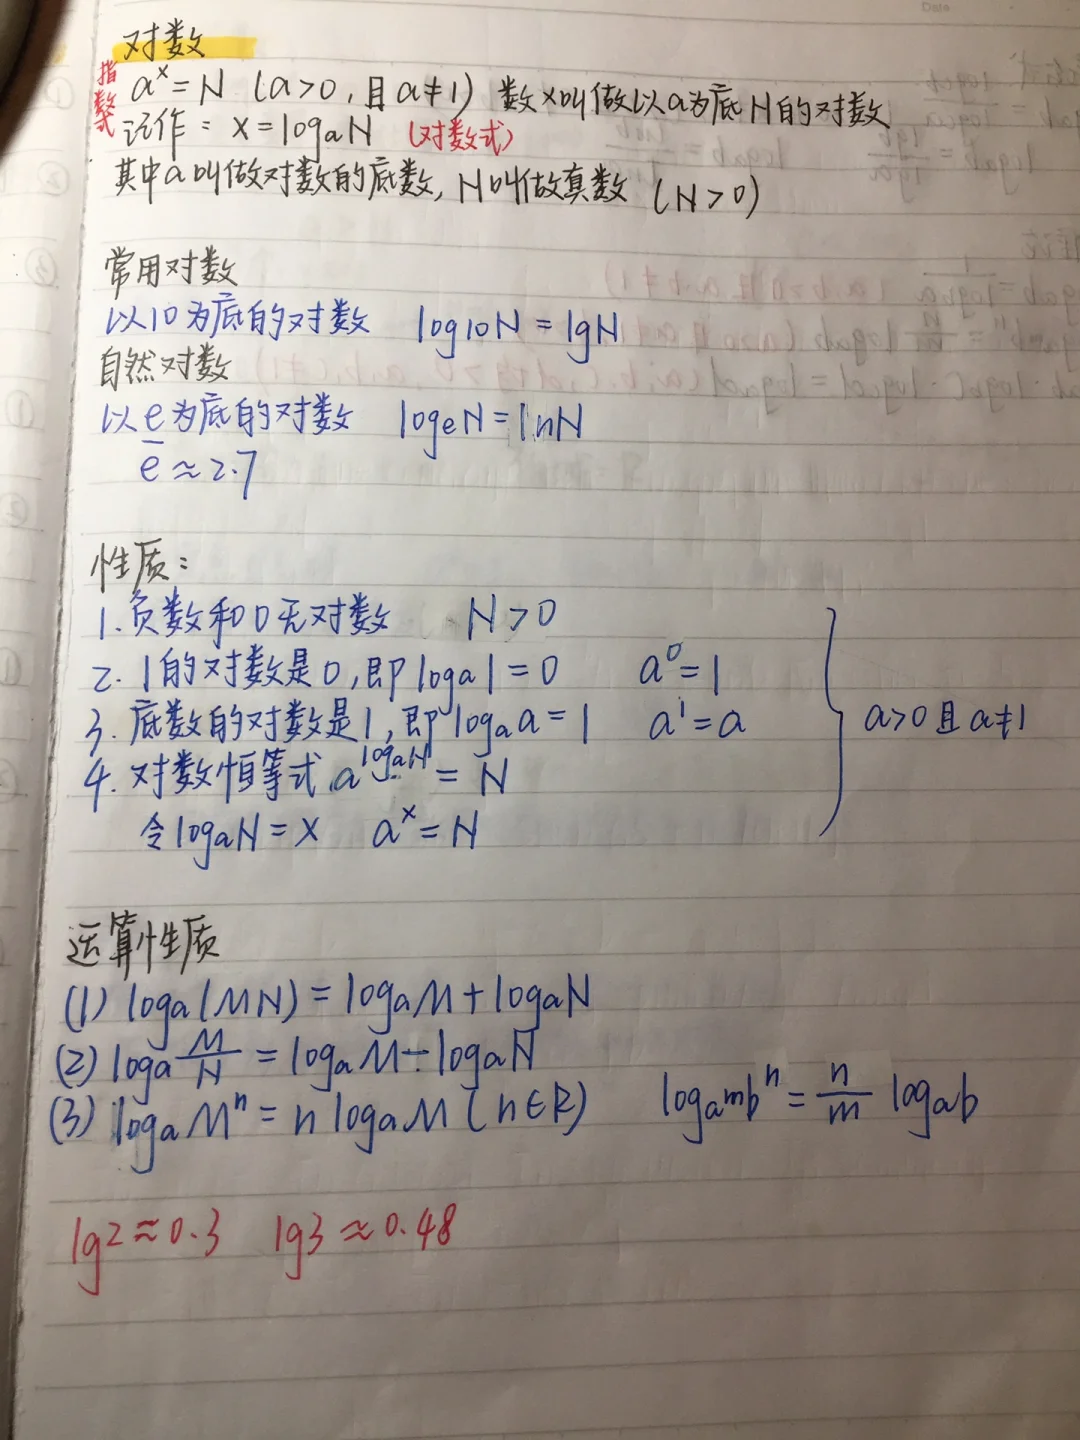 对数
指数式 aˣ=N (a>0,且a≠1) 数x叫做以a为底N的对数
记作: x=logₐN (对数式)
其中a叫做对数的底数,N叫做真数 (N>0)
常用对数
以10为底的对数 log₁₀N=lgN
自然对数
以e为底的对数 logₑN=lnN
e≈2.7
性质:
1.负数和0无对数 N>0
2.1的对数是0,即logₐ1=0 a⁰=1
3.底数的对数是1,即logₐa=1 a¹=a
a>0且a≠1
4.对数恒等式 a^(logₐN)=N
令logₐN=x aˣ=N
运算性质
(1) logₐ(MN)=logₐM+logₐN
(2) logₐ M/N = logₐM-logₐN
(3) logₐMⁿ=n logₐM (n∈R) log_(aᵐ)bⁿ = n/m logₐb
lg2≈0.3 lg3≈0.48